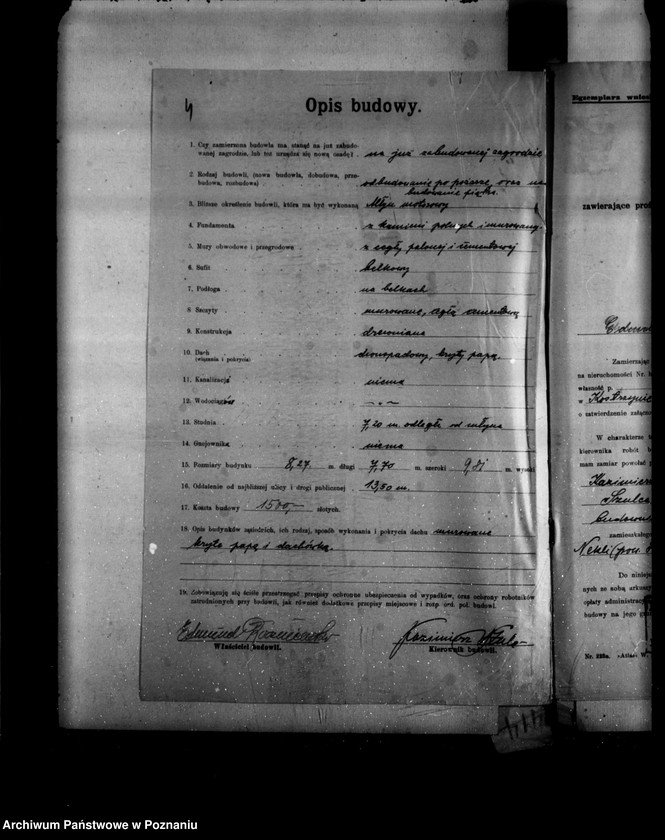 4
Opis budowy.
1. Czy zamierzona budowla ma stanąć na już zabudo-
wanej zagrodzie, lub też urządza się nową osadę? . na już zabudowanej zagrodzie
2. Rodzaj budowli, (nowa budowla, dobudowa, prze-
budowa, rozbudowa) odbudowanie po pożarze, oraz na
budowanie piętra.
3. Bliższe określenie budowli, która ma być wykonana Młyn motorowy
4. Fundamenta z kamieni polnych i murowany
5. Mury obwodowe i przegrodowe z cegły palonej i cementowej
6. Sufit belkowy
7. Podłoga na belkach
8. Szczyty murowane, cegłą cementową
9. Konstrukcja drewniana
10. Dach dwuspadowy, kryty papą.
(wiązania i pokrycia)
11. Kanalizacja niema
12. Wodociągów — „ —
13. Studnia 7,20 m. odległa od młyna
14. Gnojownika niema
15. Rozmiary budynku 8,27 m. długi 7,70 m. szeroki m. wysoki
16. Oddalenie od najbliższej ulicy i drogi publicznej 13,50 m.
17. Koszta budowy 1500,— złotych.
18. Opis budynków sąsiednich, ich rodzaj, sposób wykonania i pokrycia dachu murowane
kryte papą i dachówką.
19. Zobowiązuję się ściśle przestrzegać przepisy ochronne ubezpieczenia od wypadków, oraz ochrony robotników
zatrudnionych przy budowli, jak również dodatkowe przepisy miejscowe i rozp. ord. pol. budowl.
Edmund
Właściciel budowli.
Kazimierz Szulc
Kierownik budowli.
Egzemplarz
zawierające
Zamierzając
na nieruchomości Nr.
własność p.
w
o zatwierdzenie
W charakterze
kierownika robót
mam zamiar powołać
Kazimierza
Szulca
zamieszkałego
Nekli
Do
ych ze sobą
opłaty
budowy na jego
Nr. 225a. „Atlas"
Archiwum Państwowe w Poznaniu